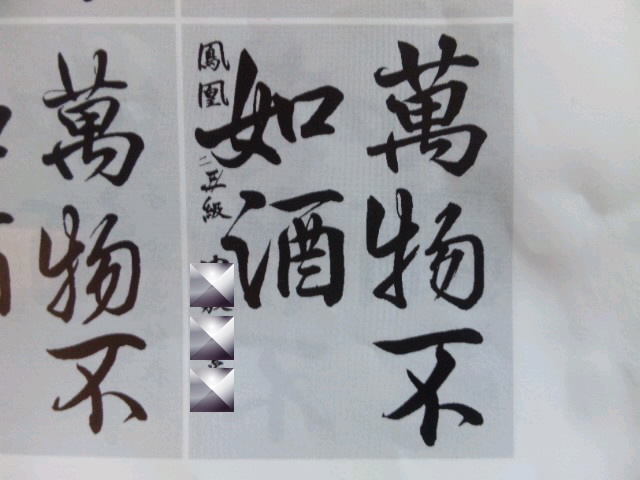 萬物不
如酒
鳳凰 二五級
萬物不